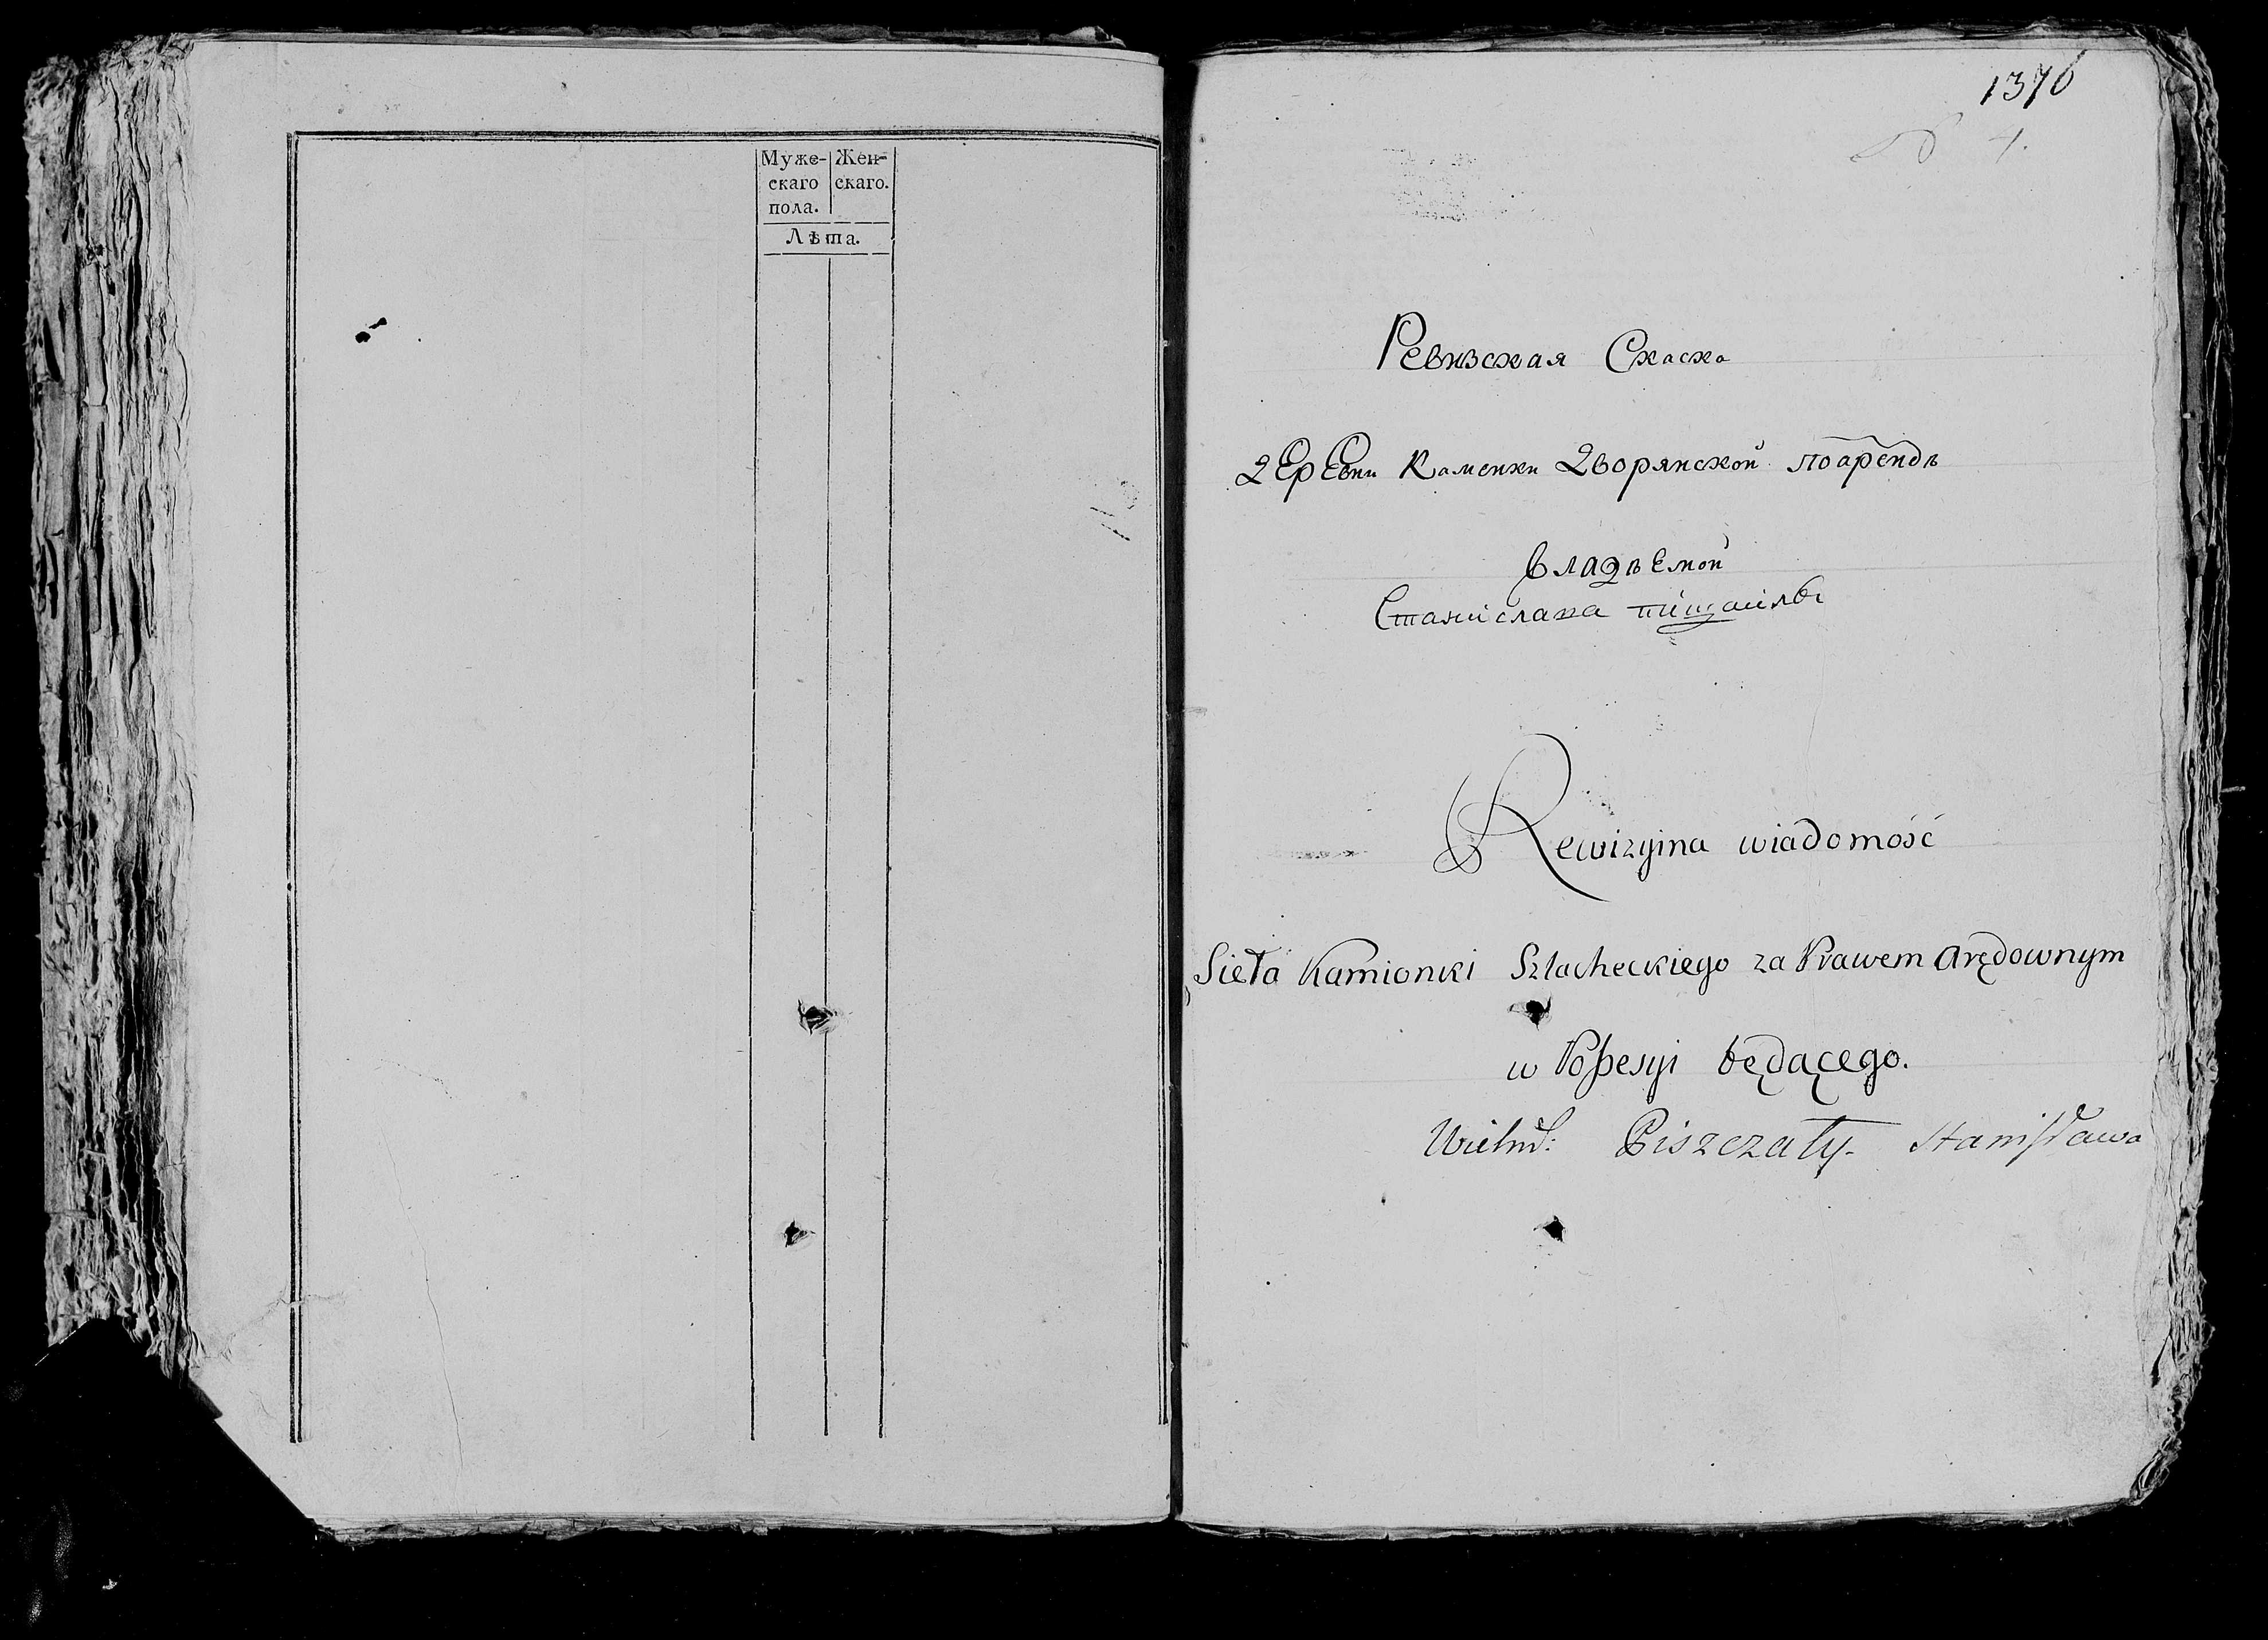 Муже- Жен-
скаго скаго.
пола.
Лѣта.
1376
4.
Ревизская Скаска
деревни Каменки Дворянской поарендѣ
владѣемой
Станислава
Rewizyina wiadomość
Sieła Kamionki Szlacheckiego za Prawem Arędownym
w Possesyi będącego.
Wielm: Piszczały Stanisława